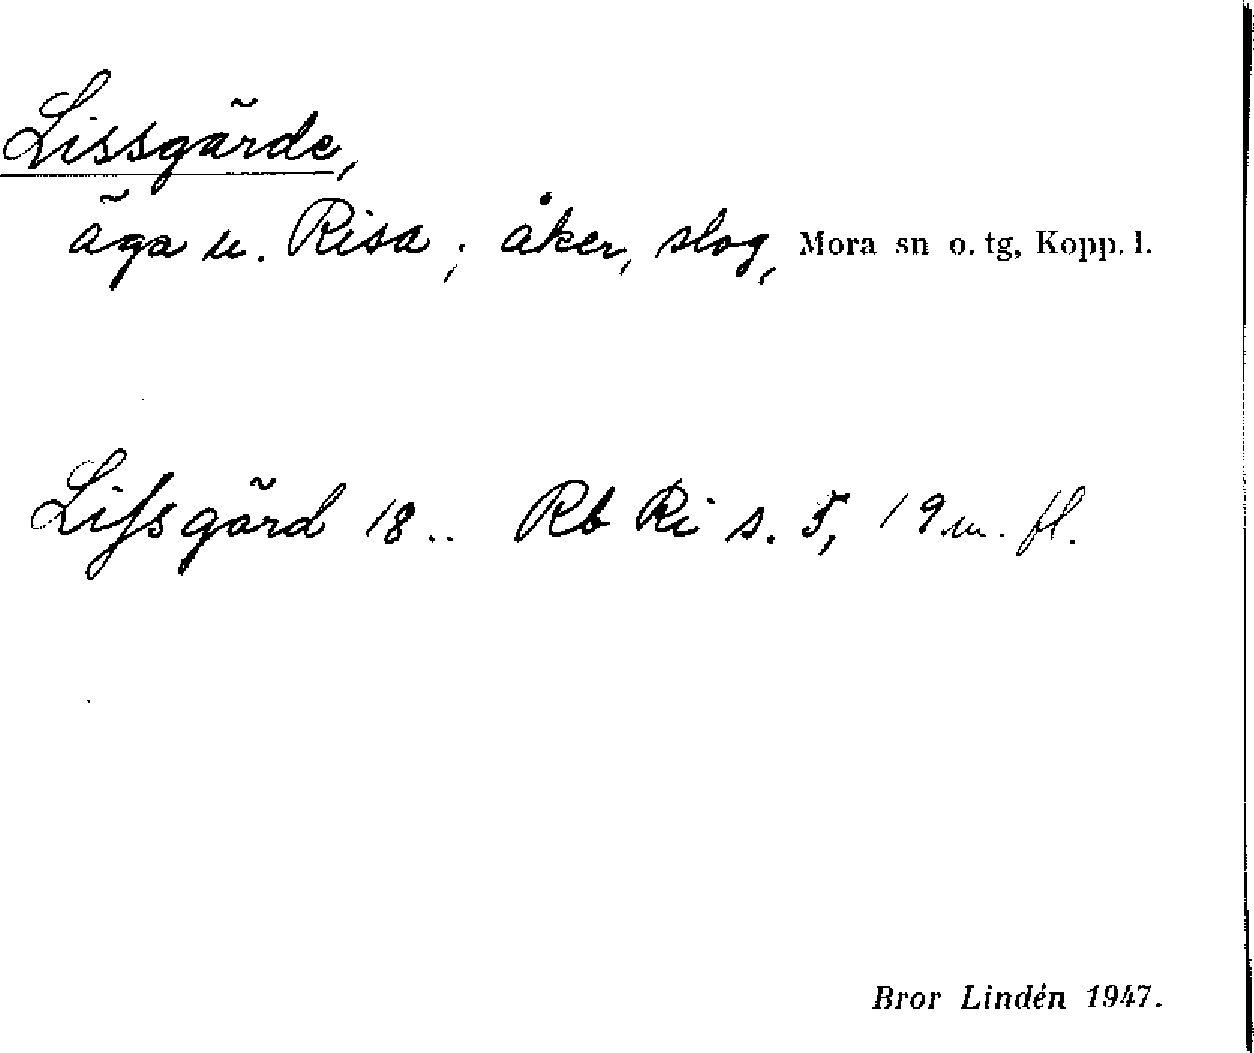 Lissgärde,
äga u. Risa; åker, slog, Mora sn o. tg, Kopp. l.
Lifsgärd 18.. Rb Ri s. 5, 19 m. fl.
Bror Lindén 1947.